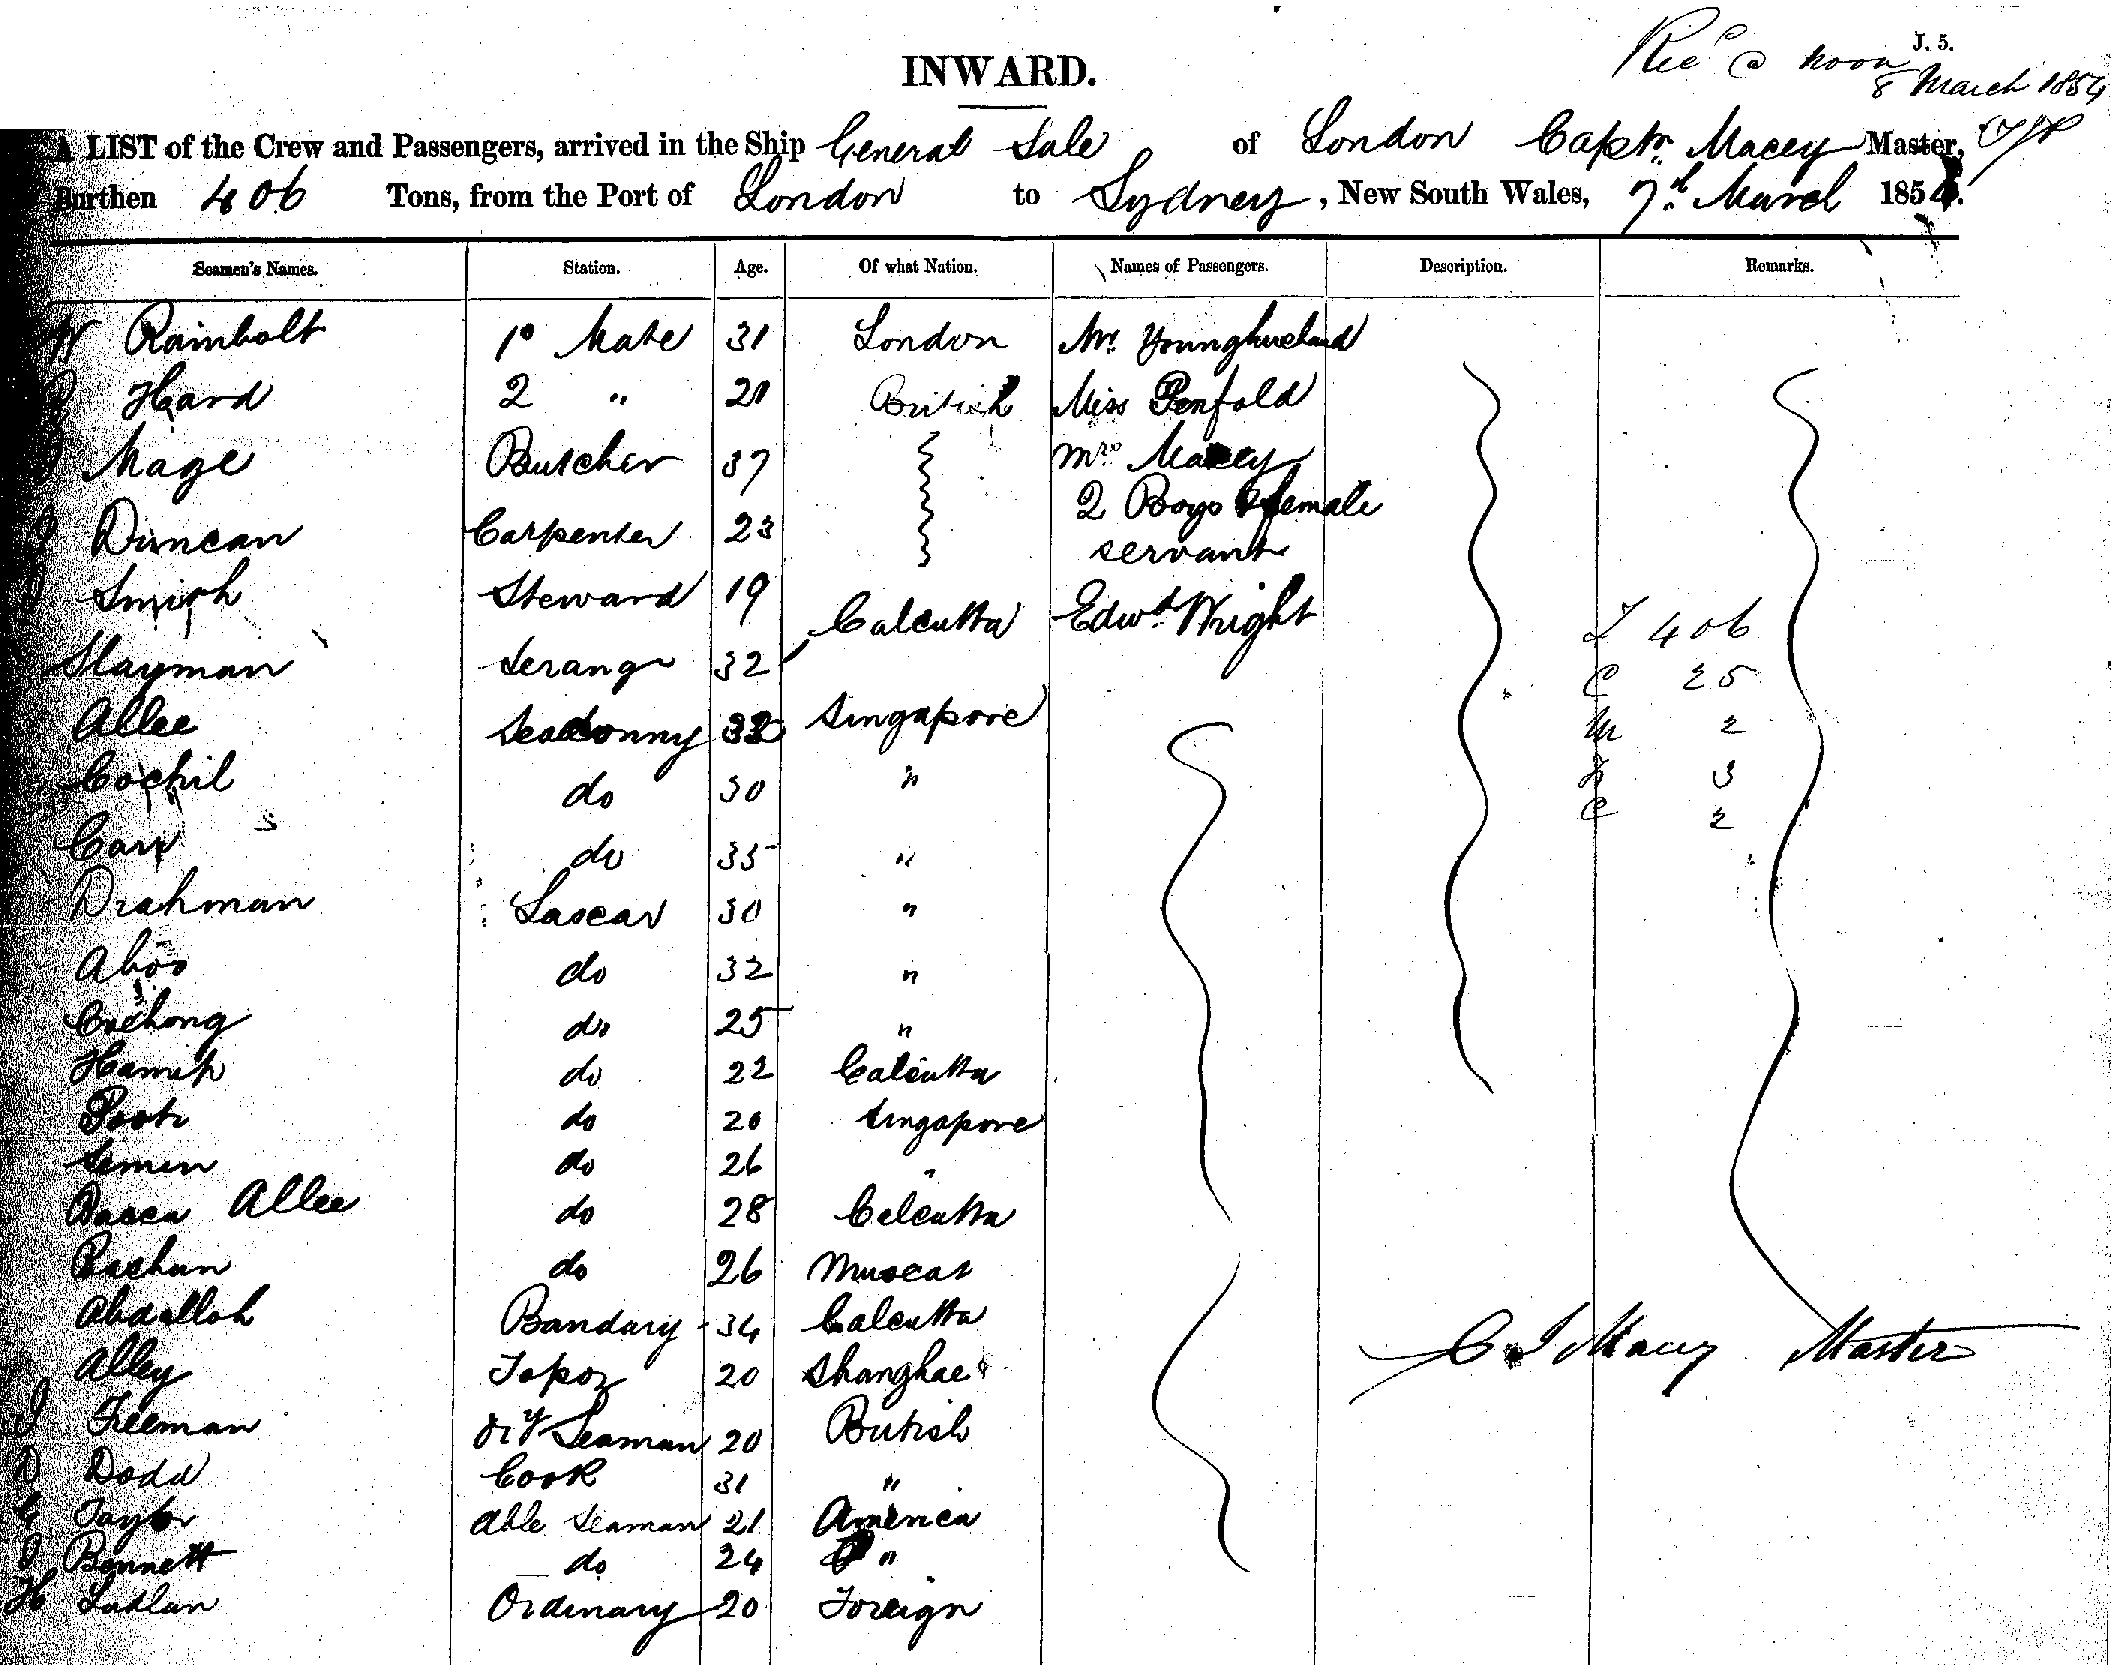 J. 5.
Rec'd @ noon
8 March 1854
INWARD.
A LIST of the Crew and Passengers, arrived in the Ship General Sale of London Captn. Macey Master,
Burthen 406 Tons, from the Port of London to Sydney, New South Wales, 7th March 1854.
Seamen's Names. Station. Age. Of what Nation. Names of Passengers. Description. Remarks.
W Rainbolt 1o Mate 31 London Mr. Younghusband
Hard 2 " 21 British Miss Penfold
Mage Butcher 37 Mrs Macey
2 Boys & female
J Duncan Carpenter 23 servant
J Smith Steward 19
Calcutta Edwd. Wright
T 406
Slayman Serang 32
C 25
Allee Seaconny 32 Singapore
M 2
Cochil do 30 "
F 3
C 2
Carr do 35 "
Drahman Lascar 30 "
Aboo do 32 "
Cochong do 25 "
Hamih do 22 Calcutta
Pooti do 20 Singapore
Semen do 26 "
Basea Allee do 28 Calcutta
Rachun do 26 Muscat
Abdalloh Bandary 34 Calcutta
C J Macey Master
Alley Topoz 20 Shanghae
J Freeman Ory Seaman 20 British
D Dodd Cook 31 "
G Taylor Able Seaman 21 America
J Bennett do 24 "
H Ladlan Ordinary 20 Foreign